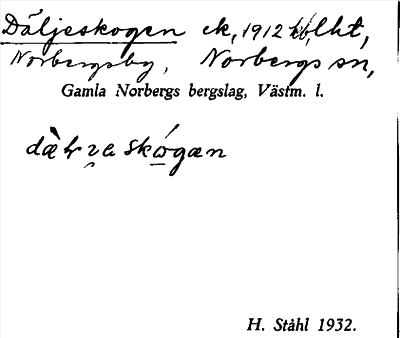 Däljeskogen ek, 1912 lht,
Norbergsby, Norbergs sn,
Gamla Norbergs bergslag, Västm. l.
skógan
H. Ståhl 1932.